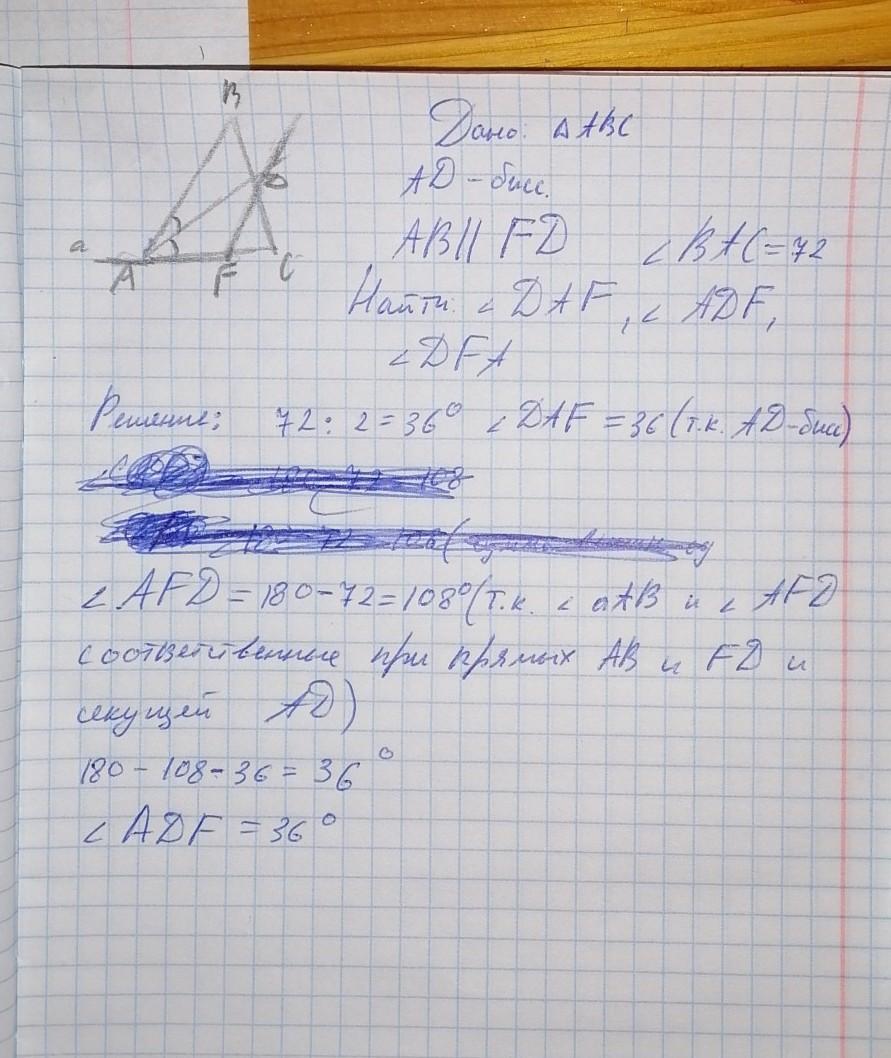 B
D
a
A
F
C
Дано: △ABC
AD - бисс.
AB || FD ∠BAC=72
Найти: ∠DAF, ∠ADF,
∠DFA
Решение: 72:2=36° ∠DAF=36(т.к. AD-бисс)
∠AFD=180-72=108°(т.к. ∠aAB и ∠AFD
соответственные при прямых AB и FD и
секущей AD)
180-108-36=36°
∠ADF=36°